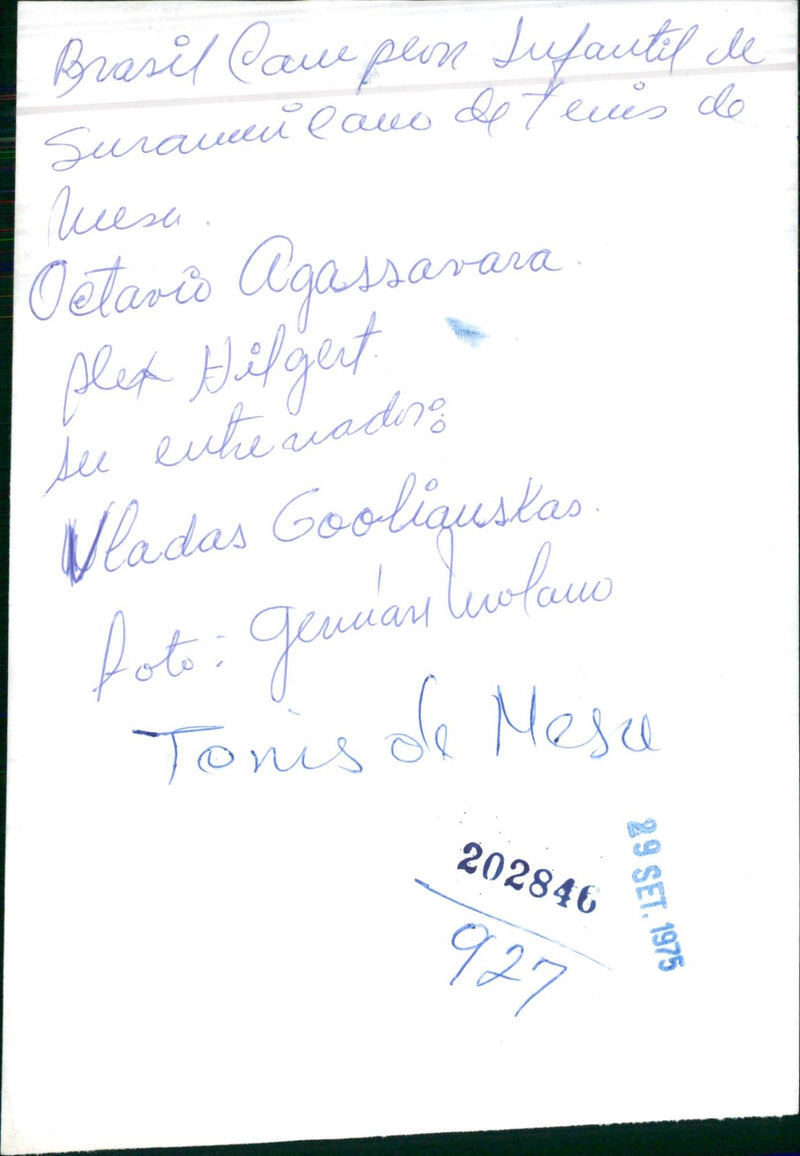 Brasil Campeon Infantil de
Suramericano de Tenis de
Mesa.
Octavio Agassavara.
Alex Hilgert.
su entrenador:
Vladas Gooliauskas.
Foto: Germán Molano
Tenis de Mesa
202846
927
29 SET. 1975